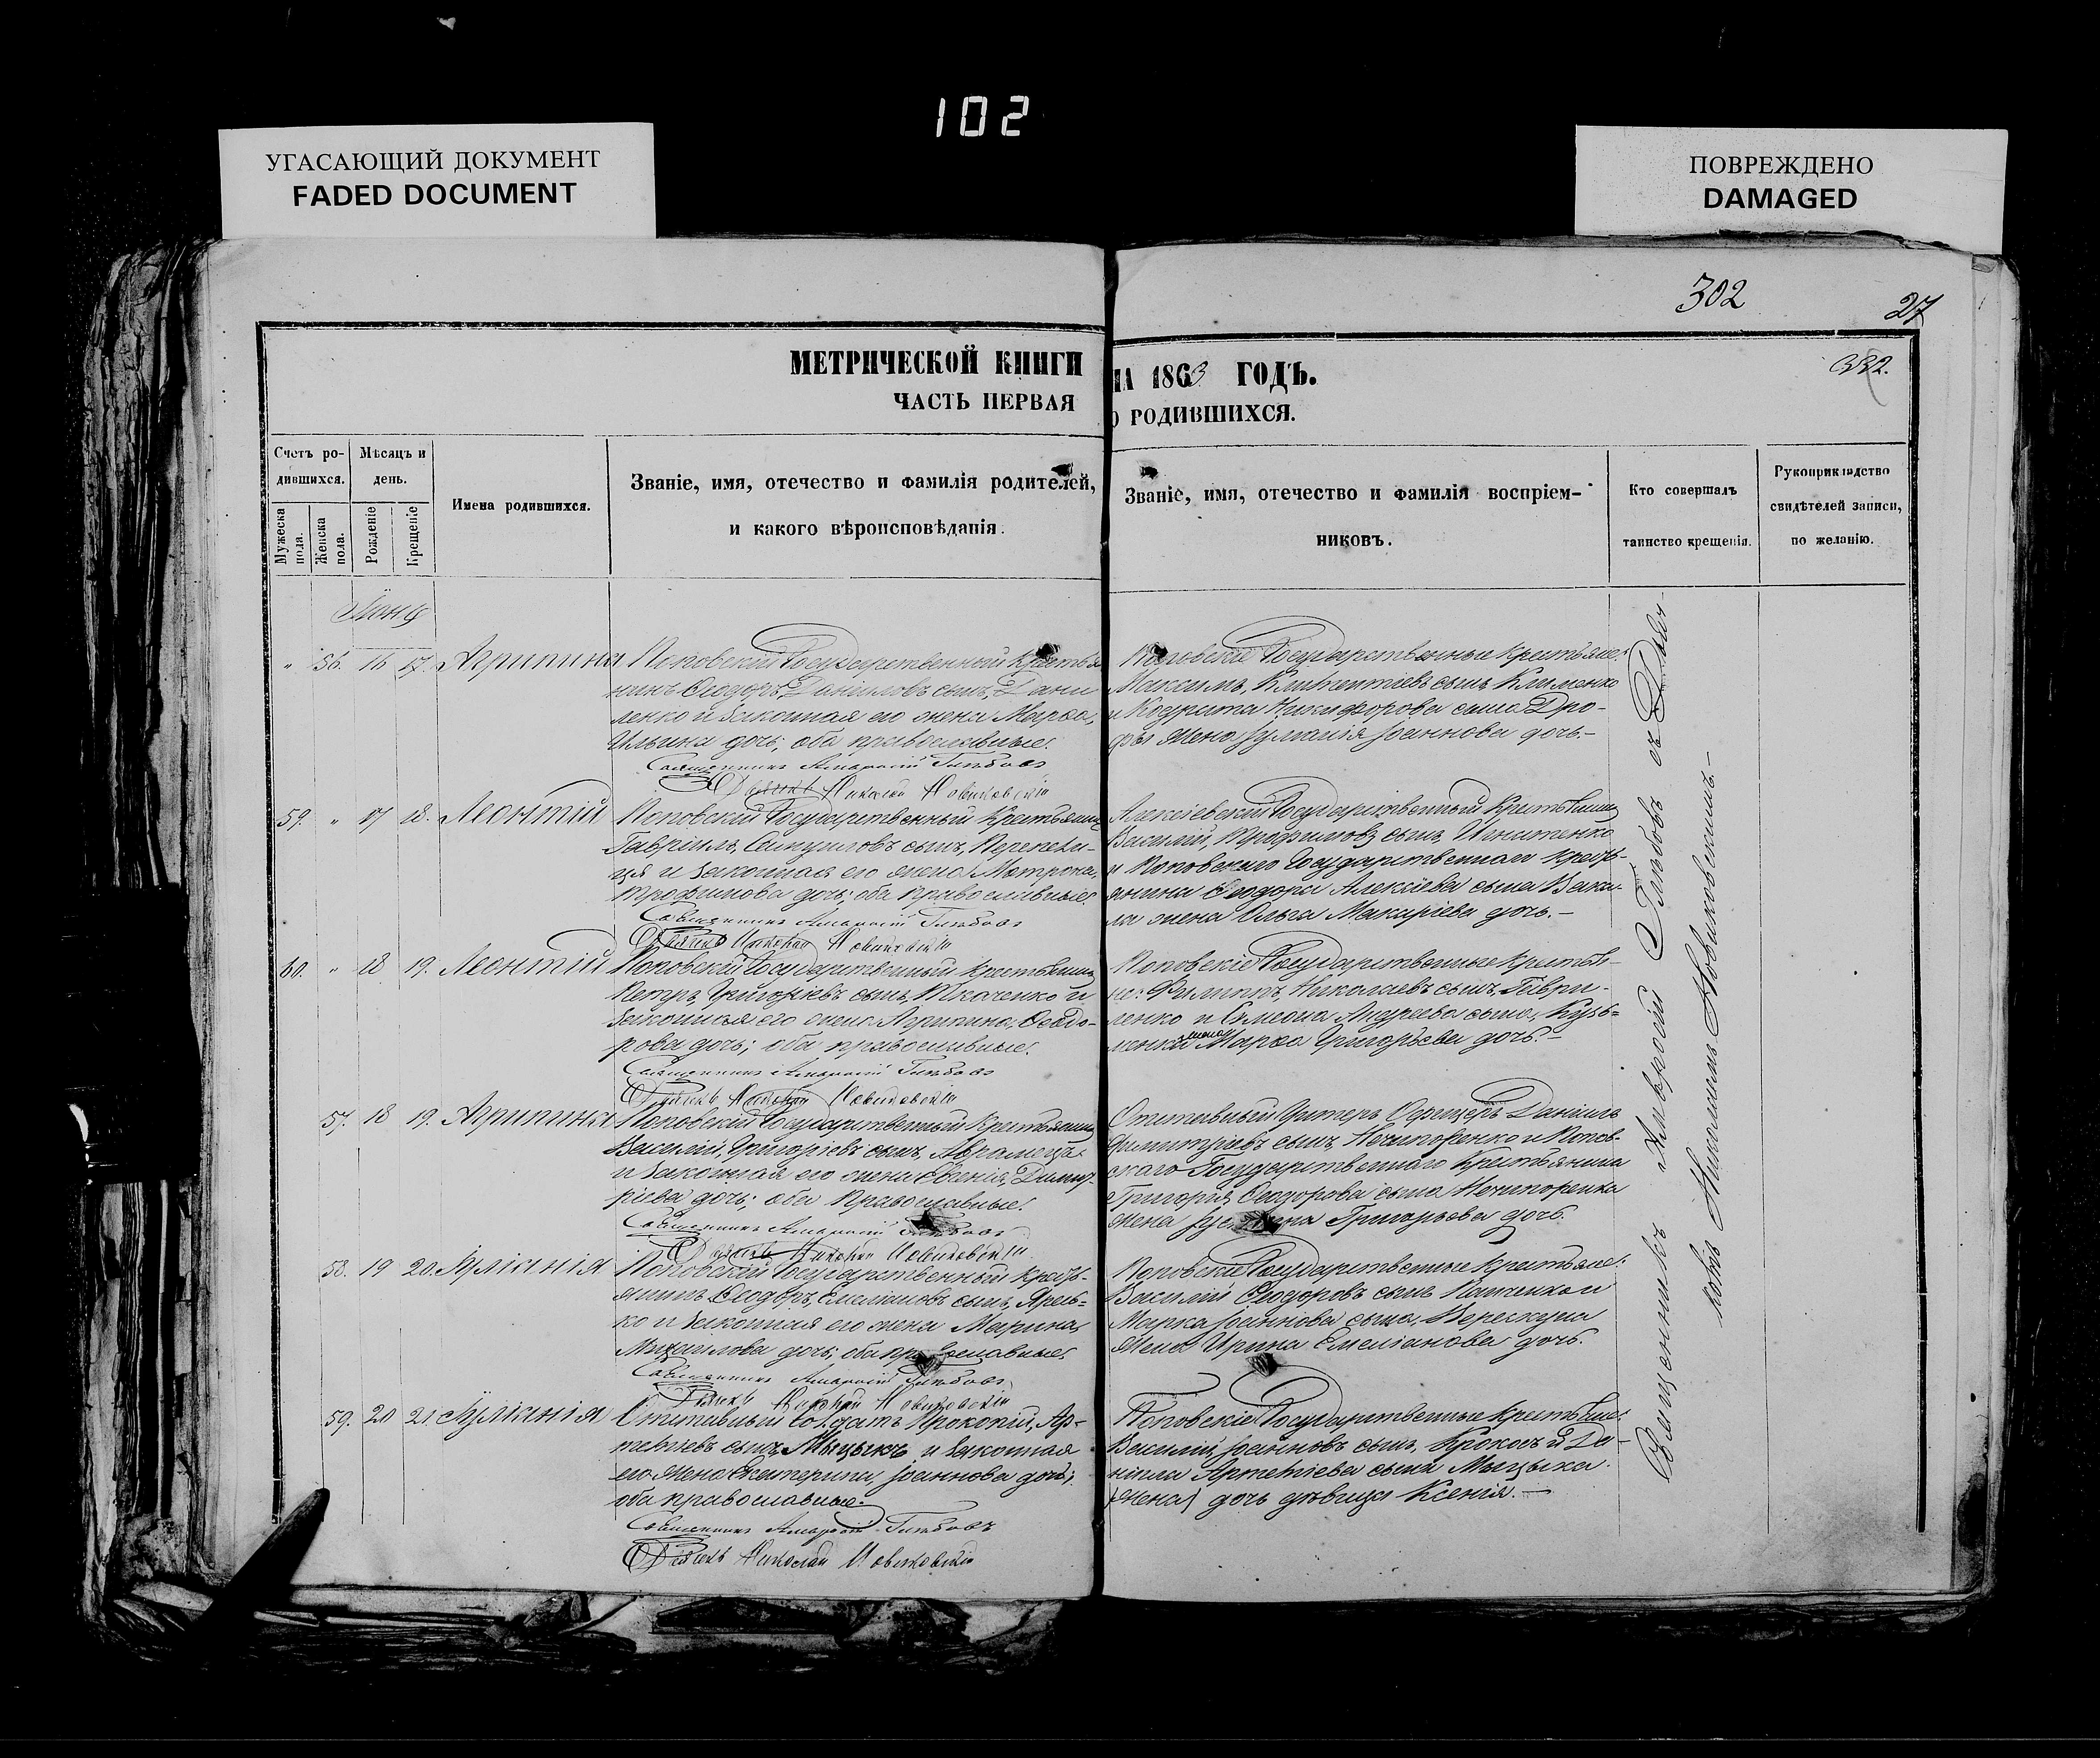 102
УГАСАЮЩИЙ ДОКУМЕНТ
FADED DOCUMENT
ПОВРЕЖДЕНО
DAMAGED
302
27
332.
МЕТРИЧЕСКОЙ КНИГИ НА 1863 ГОДЪ.
ЧАСТЬ ПЕРВАЯ О РОДИВШИХСЯ.
Счетъ ро-
дившихся.
Мужеска пола.
Женска пола.
Мѣсяцъ и
день.
Рожденіе
Крещеніе
Имена родившихся.
Званіе, имя, отечество и фамилія родителей,
и какого вѣроисповѣданія.
Званіе, имя, отечество и фамилія воспріем-
никовъ.
Кто совершалъ
таинство крещенія.
Рукоприкладство
свидѣтелей записи,
по желанію.
Іюня
" 56. 16 17. Агрипина
Поповскій Государственный Крестья
нинъ Ѳеодоръ Даніиловъ сынъ, Дани
ленко и законная его жена Марѳа,
Ильина дочь; оба православные.
Священникъ Амвросій Глѣбовъ
Дьячекъ Николай Новиковскій
Поповскіе Государственные крестьяне:
Максимъ, сынъ Клименко
и Кодрата Никифорова сына Дро-
фы жена Іуліанія Іоаннова дочь.—
59. " 17 18. Леонтій
Поповскій Государственный Крестьянинъ
Гавріилъ, Самуиловъ сынъ, Перепели-
ця и законная его жена Матрона,
Трофимова дочь; оба православные.
Священникъ Амвросій Глѣбовъ
Дьячекъ Николай Новиковскій
Алексіевскій Государственный Крестьянинъ
Василій, Трофимовъ сынъ, Игнатенко
и Поповскаго Государственнаго Кресть-
янина Ѳеодора Алексіева сына Вака-
ла жена Ольга Макаріева дочь.—
60. " 18 19. Леонтій
Поповскій Государственный Крестьянинъ
Петръ, Григоріевъ сынъ, Ткаченко и
законная его жена Агрипина, Ѳеодо-
рова дочь; оба православные.
Священникъ Амвросій Глѣбовъ
Дьячекъ Николай Новиковскій
Поповскіе Государственные Крестья-
не: Филиппъ, Николаевъ сынъ, Гаври-
ленко и Симеона Андреева сына, Кузь-
менка жена Марѳа Григорьева дочь.—
57. 18 19. Агрипина
Поповскій Государственный Крестьянинъ
Василій, Григоріевъ сынъ, Абрамецъ
и законная его жена Евгенія, Димит-
ріева дочь; оба Православные.
Священникъ Амвросій Глѣбовъ
Дьячекъ Николай Новиковскій
Отставный Унтеръ Офицеръ Даніилъ
Димитріевъ сынъ, Нечипоренко и Попов-
скаго Государственнаго Крестьянина
Григорія, Ѳеодорова сына Нечипоренка
жена Григорьева дочь.
58. 19 20. Іуліанія
Поповскій Государственный кресть-
янинъ Ѳеодоръ, Емеліановъ сынъ, Яреь-
ко и законная его жена Марина,
Михаилова дочь; оба православные.
Священникъ Амвросій Глѣбовъ
Дьячекъ Николай Новиковскій
Поповскіе Государственные крестьяне:
Василій Ѳеодоровъ сынъ Панченко и
Марка Іоаннова сына, Верескуна
жена Ирина Емеліанова дочь.
59. 20 21. Іуліанія
Отставный Солдатъ Прокопій, Ар-
темьевъ сынъ, Мыцыкъ и законная
его жена Екатерина, Іоаннова дочь;
оба православные.
Священникъ Амвросій Глѣбовъ
Дьячекъ Николай Новиковскій
Поповскіе Государственные Крестьяне:
Василій, Іоанновъ сынъ, Крокосъ и Да-
ніила Артеміева сына Мыцыка
(жена) дочь дѣвица Ксенія.—
Священникъ Амвросій Глѣбовъ съ Дьяч-
комъ Николаемъ Новиковскимъ.—